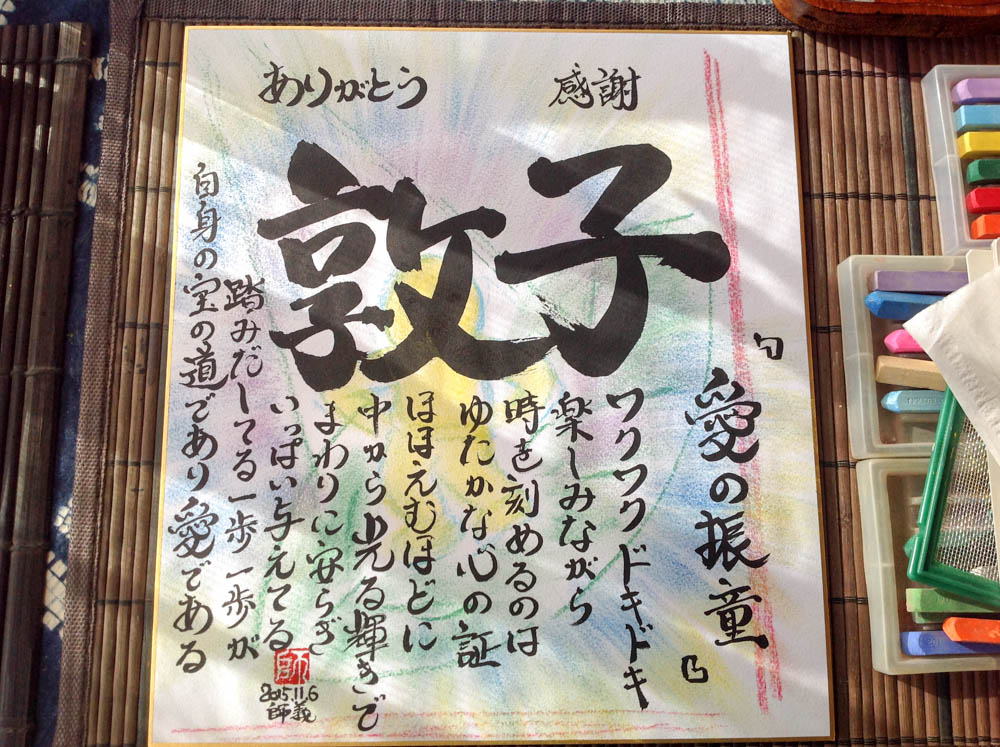 ありがとう
感謝
敦子
「愛の振童」
ワクワクドキドキ
楽しみながら
時を刻めるのは
ゆたかな心の証
ほほえむほどに
中から光る輝きで
まわりに安らぎ
いっぱい与えてる
踏みだしてる一歩一歩が
自身の宝の道であり愛である
師
2015.11.6
師義